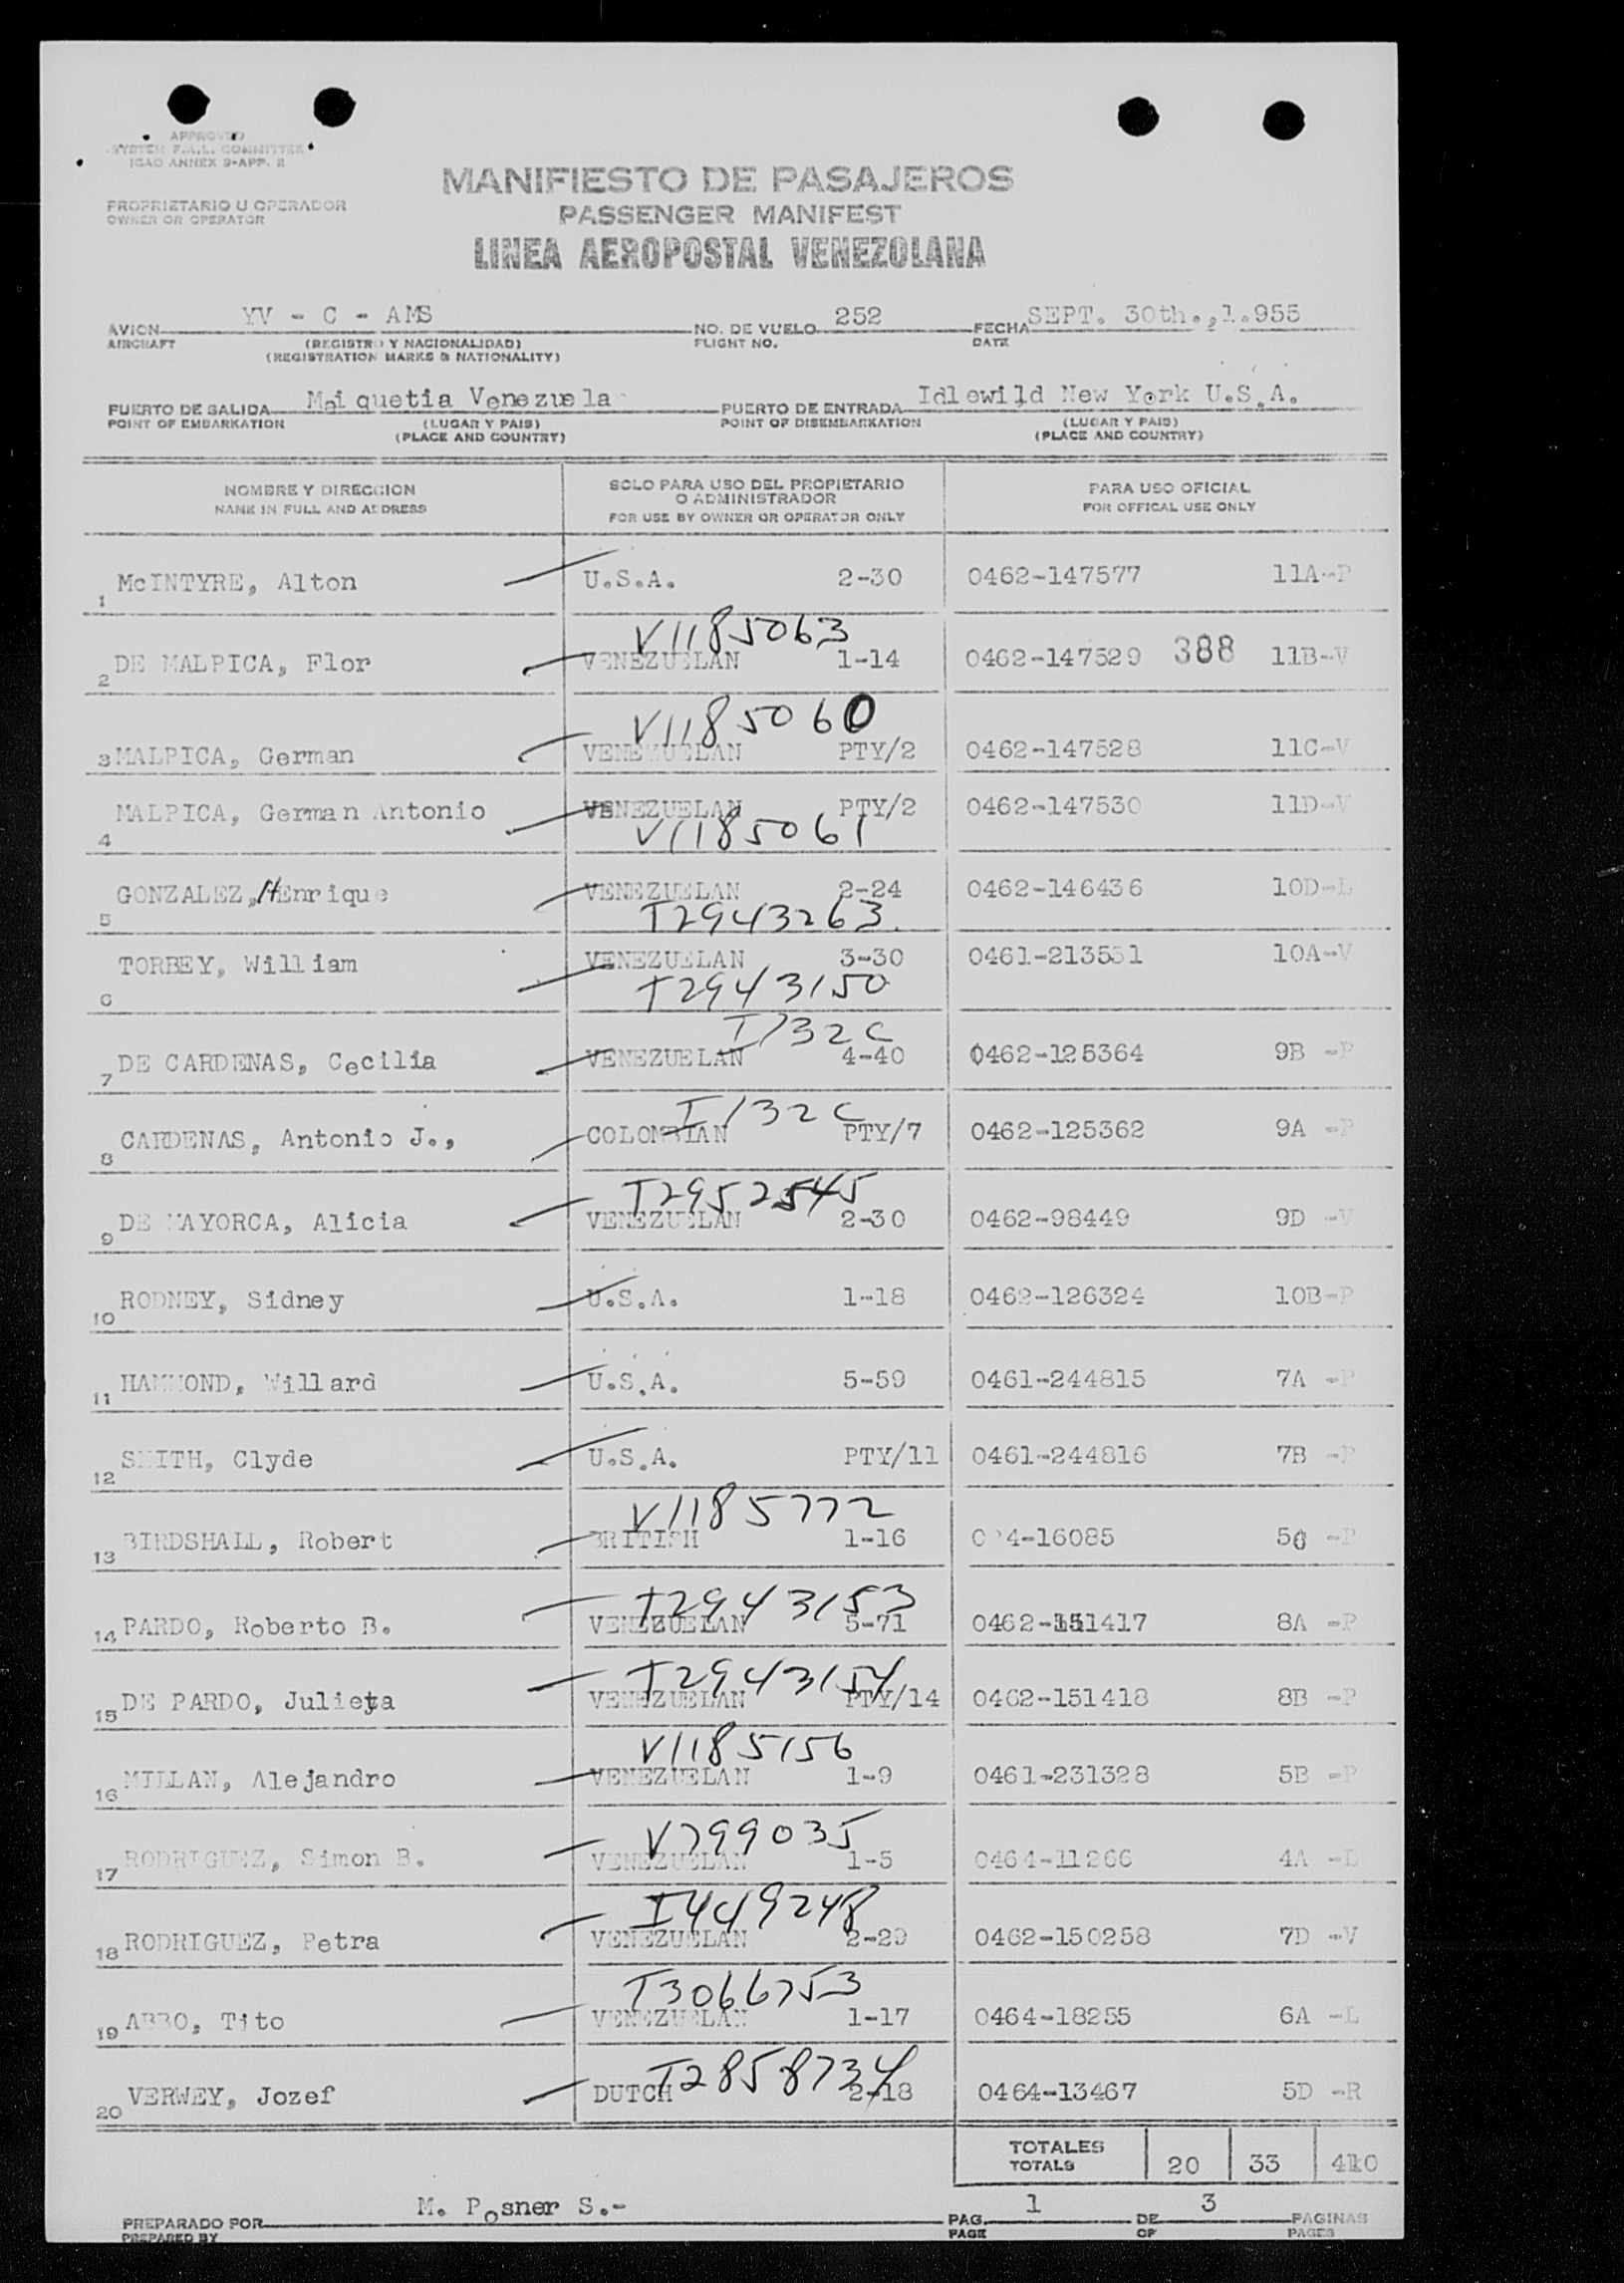 APPROVED
SYSTEM F.A.L. COMMITTEE
ICAO ANNEX 9-APP. 2
PROPRIETARIO U OPERADOR
OWNER OR OPERATOR
MANIFIESTO DE PASAJEROS
PASSENGER MANIFEST
LINEA AEROPOSTAL VENEZOLANA
AVION YV - C - AMS NO. DE VUELO 252 FECHA SEPT. 30th.,1.955
AIRCRAFT (REGISTRO Y NACIONALIDAD) FLIGHT NO. DATE
(REGISTRATION MARKS & NATIONALITY)
PUERTO DE SALIDA Maiquetia Venezuela PUERTO DE ENTRADA Idlewild New York U.S.A.
POINT OF EMBARKATION (LUGAR Y PAIS) POINT OF DISEMBARKATION (LUGAR Y PAIS)
(PLACE AND COUNTRY) (PLACE AND COUNTRY)
NOMBRE Y DIRECCION SOLO PARA USO DEL PROPIETARIO O ADMINISTRADOR PARA USO OFICIAL
NAME IN FULL AND ADDRESS FOR USE BY OWNER OR OPERATOR ONLY FOR OFFICAL USE ONLY
1 McINTYRE, Alton U.S.A. 2-30 0462-147577 11A-P
V1185063
2 DE MALPICA, Flor VENEZUELAN 1-14 0462-147529 388 11B-V
V1185060
3 MALPICA, German VENEZUELAN PTY/2 0462-147528 11C-V
4 MALPICA, German Antonio VENEZUELAN PTY/2 0462-147530 11D-V
V1185061
5 GONZALEZ, HEnrique VENEZUELAN 2-24 0462-146436 10D-L
T2943263
6 TORBEY, William VENEZUELAN 3-30 0461-213551 10A-V
T2943150
I 132C
7 DE CARDENAS, Cecilia VENEZUELAN 4-40 0462-125364 9B -P
I 132C
8 CARDENAS, Antonio J., COLOMBIAN PTY/7 0462-125362 9A -P
T2952545
9 DE MAYORCA, Alicia VENEZUELAN 2-30 0462-98449 9D -V
10 RODNEY, Sidney U.S.A. 1-18 0462-126324 10B-P
11 HAMMOND, Willard U.S.A. 5-59 0461-244815 7A -P
12 SMITH, Clyde U.S.A. PTY/11 0461-244816 7B -P
V1185772
13 BIRDSHALL, Robert BRITISH 1-16 -P
T2943153
14 PARDO, Roberto B. VENEZUELAN 5-71 0462-151417 8A -P
T2943154
15 DE PARDO, Julieta VENEZUELAN PTY/14 0462-151418 8B -P
V1185156
16 MILLAN, Alejandro VENEZUELAN 1-9 0461-231328 5B -P
V799035
17 RODRIGUEZ, Simon B. VENEZUELAN 1-5 0464-11266 4A -L
I449248
18 RODRIGUEZ, Petra VENEZUELAN 2-29 0462-150258 7D -V
T3066753
19 ABBO, Tito VENEZUELAN 1-17 0464-18255 6A -L
T2858734
20 VERWEY, Jozef DUTCH 2-18 0464-13467 5D -R
TOTALES
TOTALS 20 33 410
PREPARADO POR M. Posner S.- PAG. 1 DE 3 PAGINAS
PREPARED BY PAGE OF PAGES